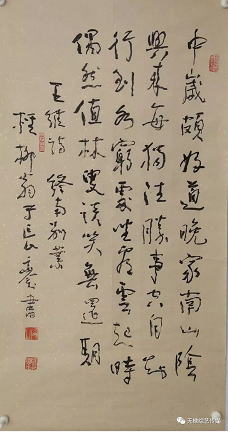 中歲頗好道晚家南山陲
興來每獨往勝事空自知
行到水窮處坐看雲起時
偶然值林叟談笑無還期
王維詩 終南別業
柳翁于書
综艺传媒